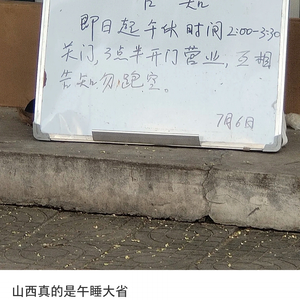 告知
即日起午休时间2:00-3:30
关门,3点半开门营业,互相
告知勿跑空。
7月6日
山西真的是午睡大省